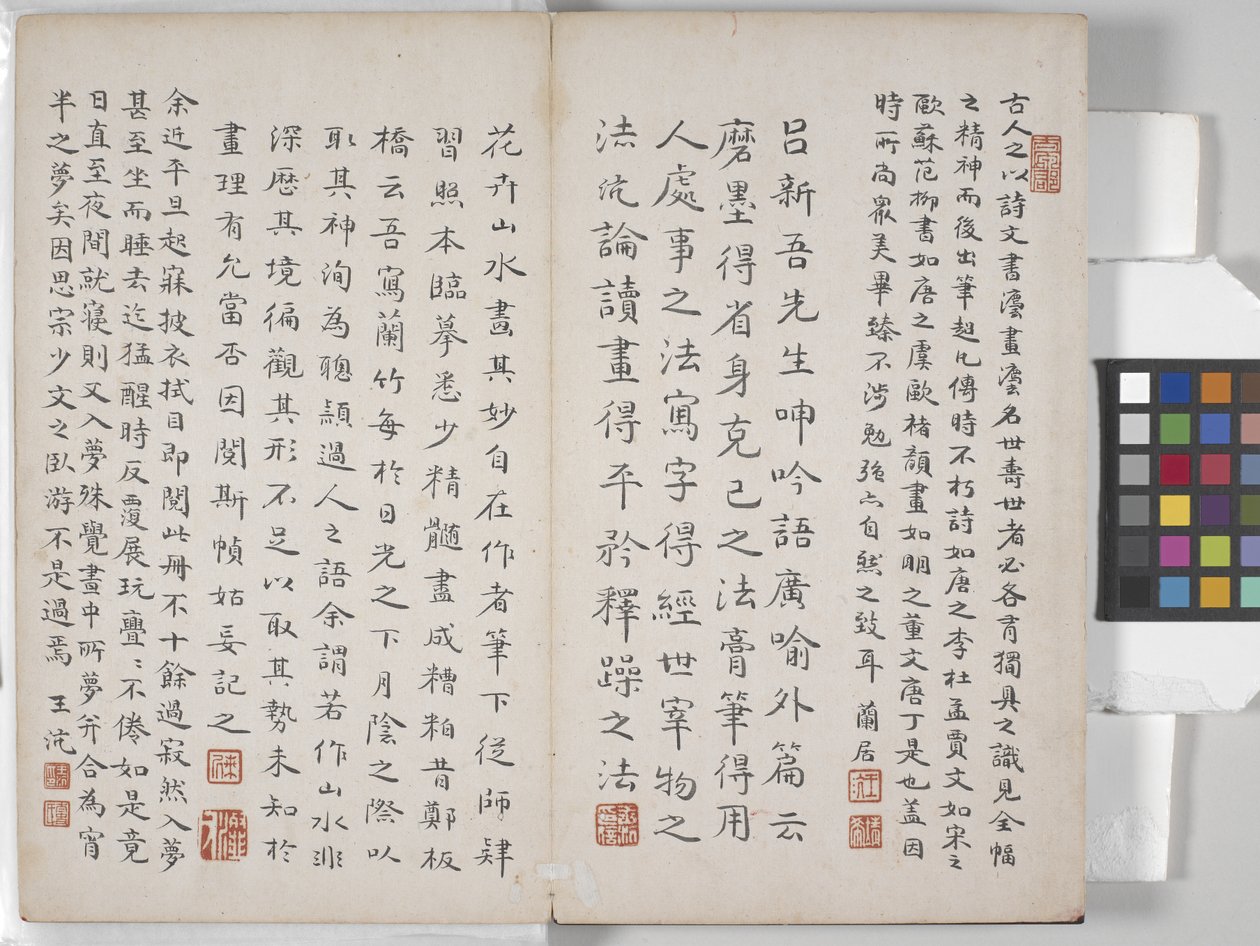 古人之以詩文書灋畫灋名世壽世者必各有獨具之識見全幅
之精神而後出筆超凡傳時不朽詩如唐之李杜孟賈文如宋之
歐蘇范柳書如唐之虞歐褚顏畫如明之董文唐丁是也盖因
時所尚衆美畢臻不涉勉强亦自然之致耳 蘭居
呂新吾先生呻吟語廣喻外篇云
磨墨得省身克己之法膏筆得用
人處事之法寫字得經世宰物之
法沇論讀畫得平矜釋躁之法
花卉山水畫其妙自在作者筆下從師肄
習照本臨摹悉少精髓盡成糟粕昔鄭板
橋云吾寫蘭竹每於日光之下月陰之際以
取其神洵為聰頴過人之語余謂若作山水非
深歷其境徧觀其形不足以取其勢未知於
畫理有允當否因閱斯幀姑妄記之
余近平旦起寐披衣拭目即閱此冊不十餘過寂然入夢
甚至坐而睡去迄猛醒時反覆展玩亹〻不倦如是竟
日直至夜間就寢則又入夢殊覺畫中所夢并合為宵
半之夢矣因思宗少文之臥游不是過焉 王沇